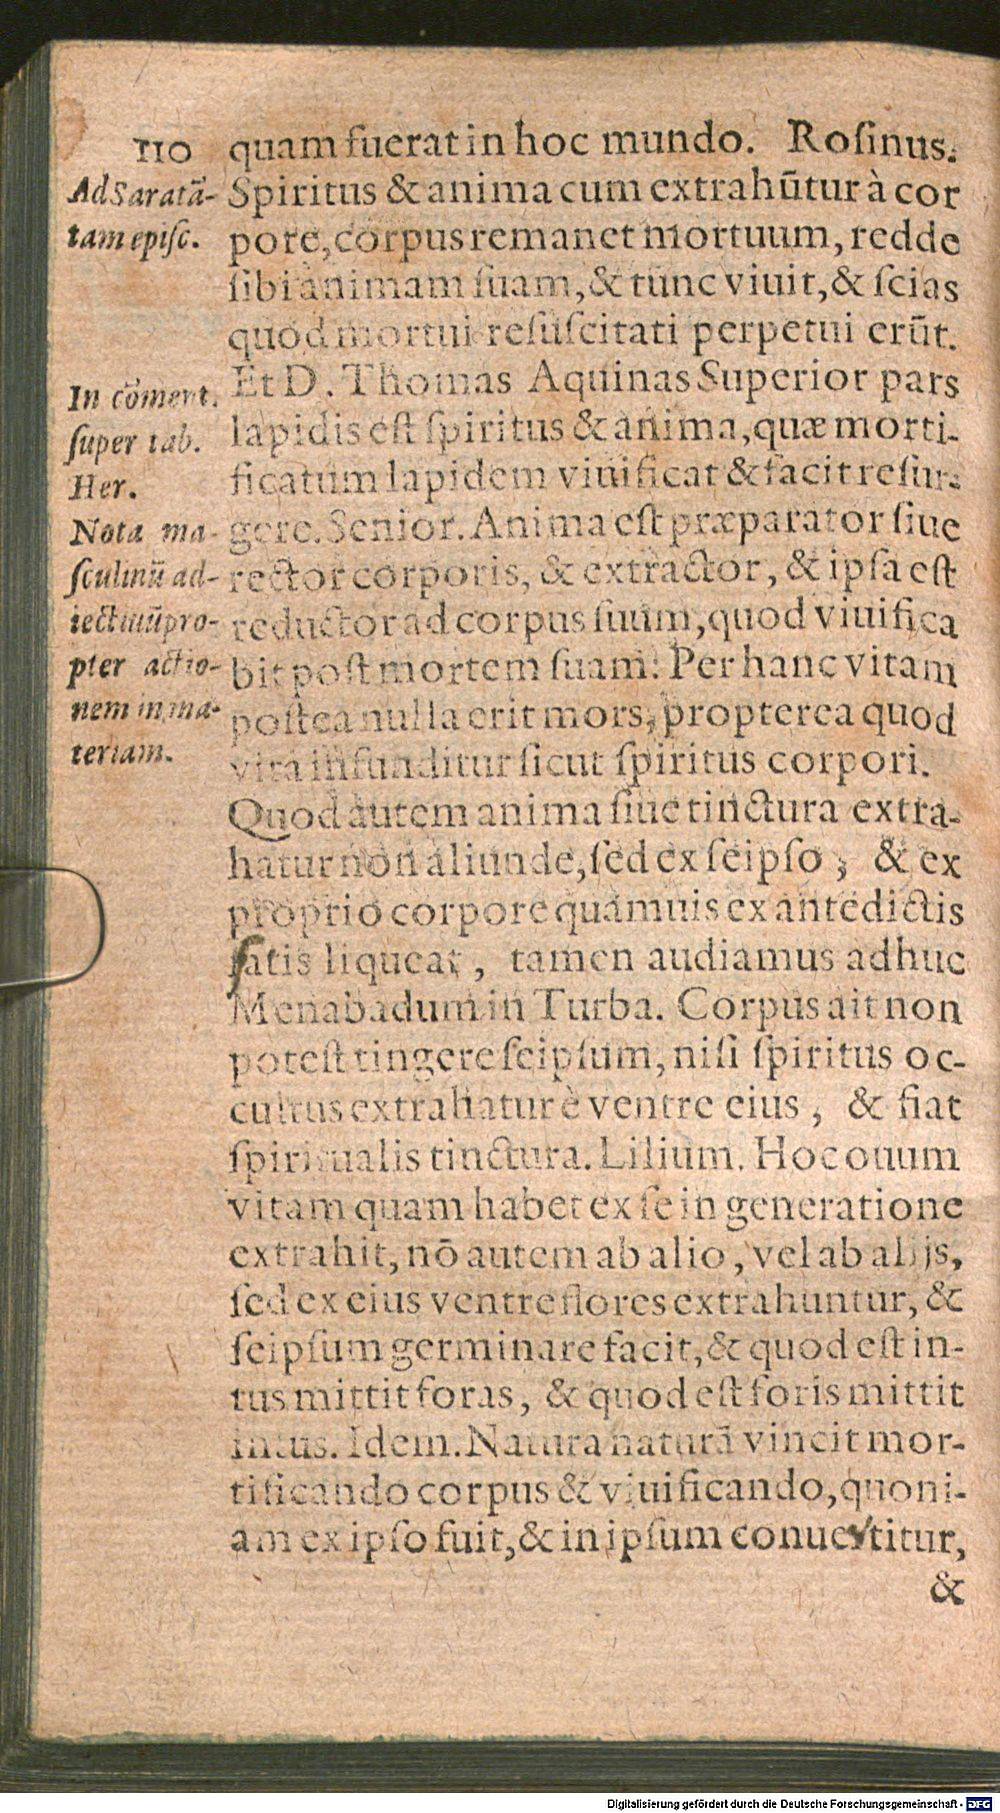 110
quam fuerat in hoc mundo. Roſinus.
Spiritus & anima cum extrahūtur à cor
pore, corpus remanet mortuum, redde
ſibi animam ſuam, & tunc viuit, & ſcias
quod mortui reſuſcitati perpetui erūt.
Et D. Thomas Aquinas Superior pars
lapidis eſt ſpiritus & anima, quæ morti-
ficatum lapidem viuificat & facit reſur-
gere. Senior. Anima eſt præparator ſiue
rector corporis, & extractor, & ipſa eſt
reductor ad corpus ſuum, quod viuifica
bit poſt mortem ſuam: Per hanc vitam
poſtea nulla erit mors, propterea quod
vita infunditur ſicut ſpiritus corpori.
Quod autem anima ſiue tinctura extra-
hatur non aliunde, ſed ex ſeipſo, & ex
proprio corpore quamuis ex antedictis
ſatis liqueat, tamen audiamus adhuc
Menabadum in Turba. Corpus ait non
poteſt tingere ſeipſum, niſi ſpiritus oc-
cultus extrahatur è ventre eius, & fiat
ſpiritualis tinctura. Lilium. Hoc ouum
vitam quam habet ex ſe in generatione
extrahit, nō autem ab alio, vel ab alijs,
ſed ex eius ventre flores extrahuntur, &
ſeipſum germinare facit, & quod eſt in-
tus mittit foras, & quod eſt foris mittit
intus. Idem. Natura naturā vincit mor-
tificando corpus & viuificando, quoni-
am ex ipſo fuit, & in ipſum conuertitur,
&
Ad Saratā-
tam epiſc.
In cōment.
ſuper tab.
Her.
Nota ma-
ſculinū ad-
iectiuū pro-
pter actio-
nem in ma-
teriam.
Digitalisierung gefördert durch die Deutsche Forschungsgemeinschaft - DFG